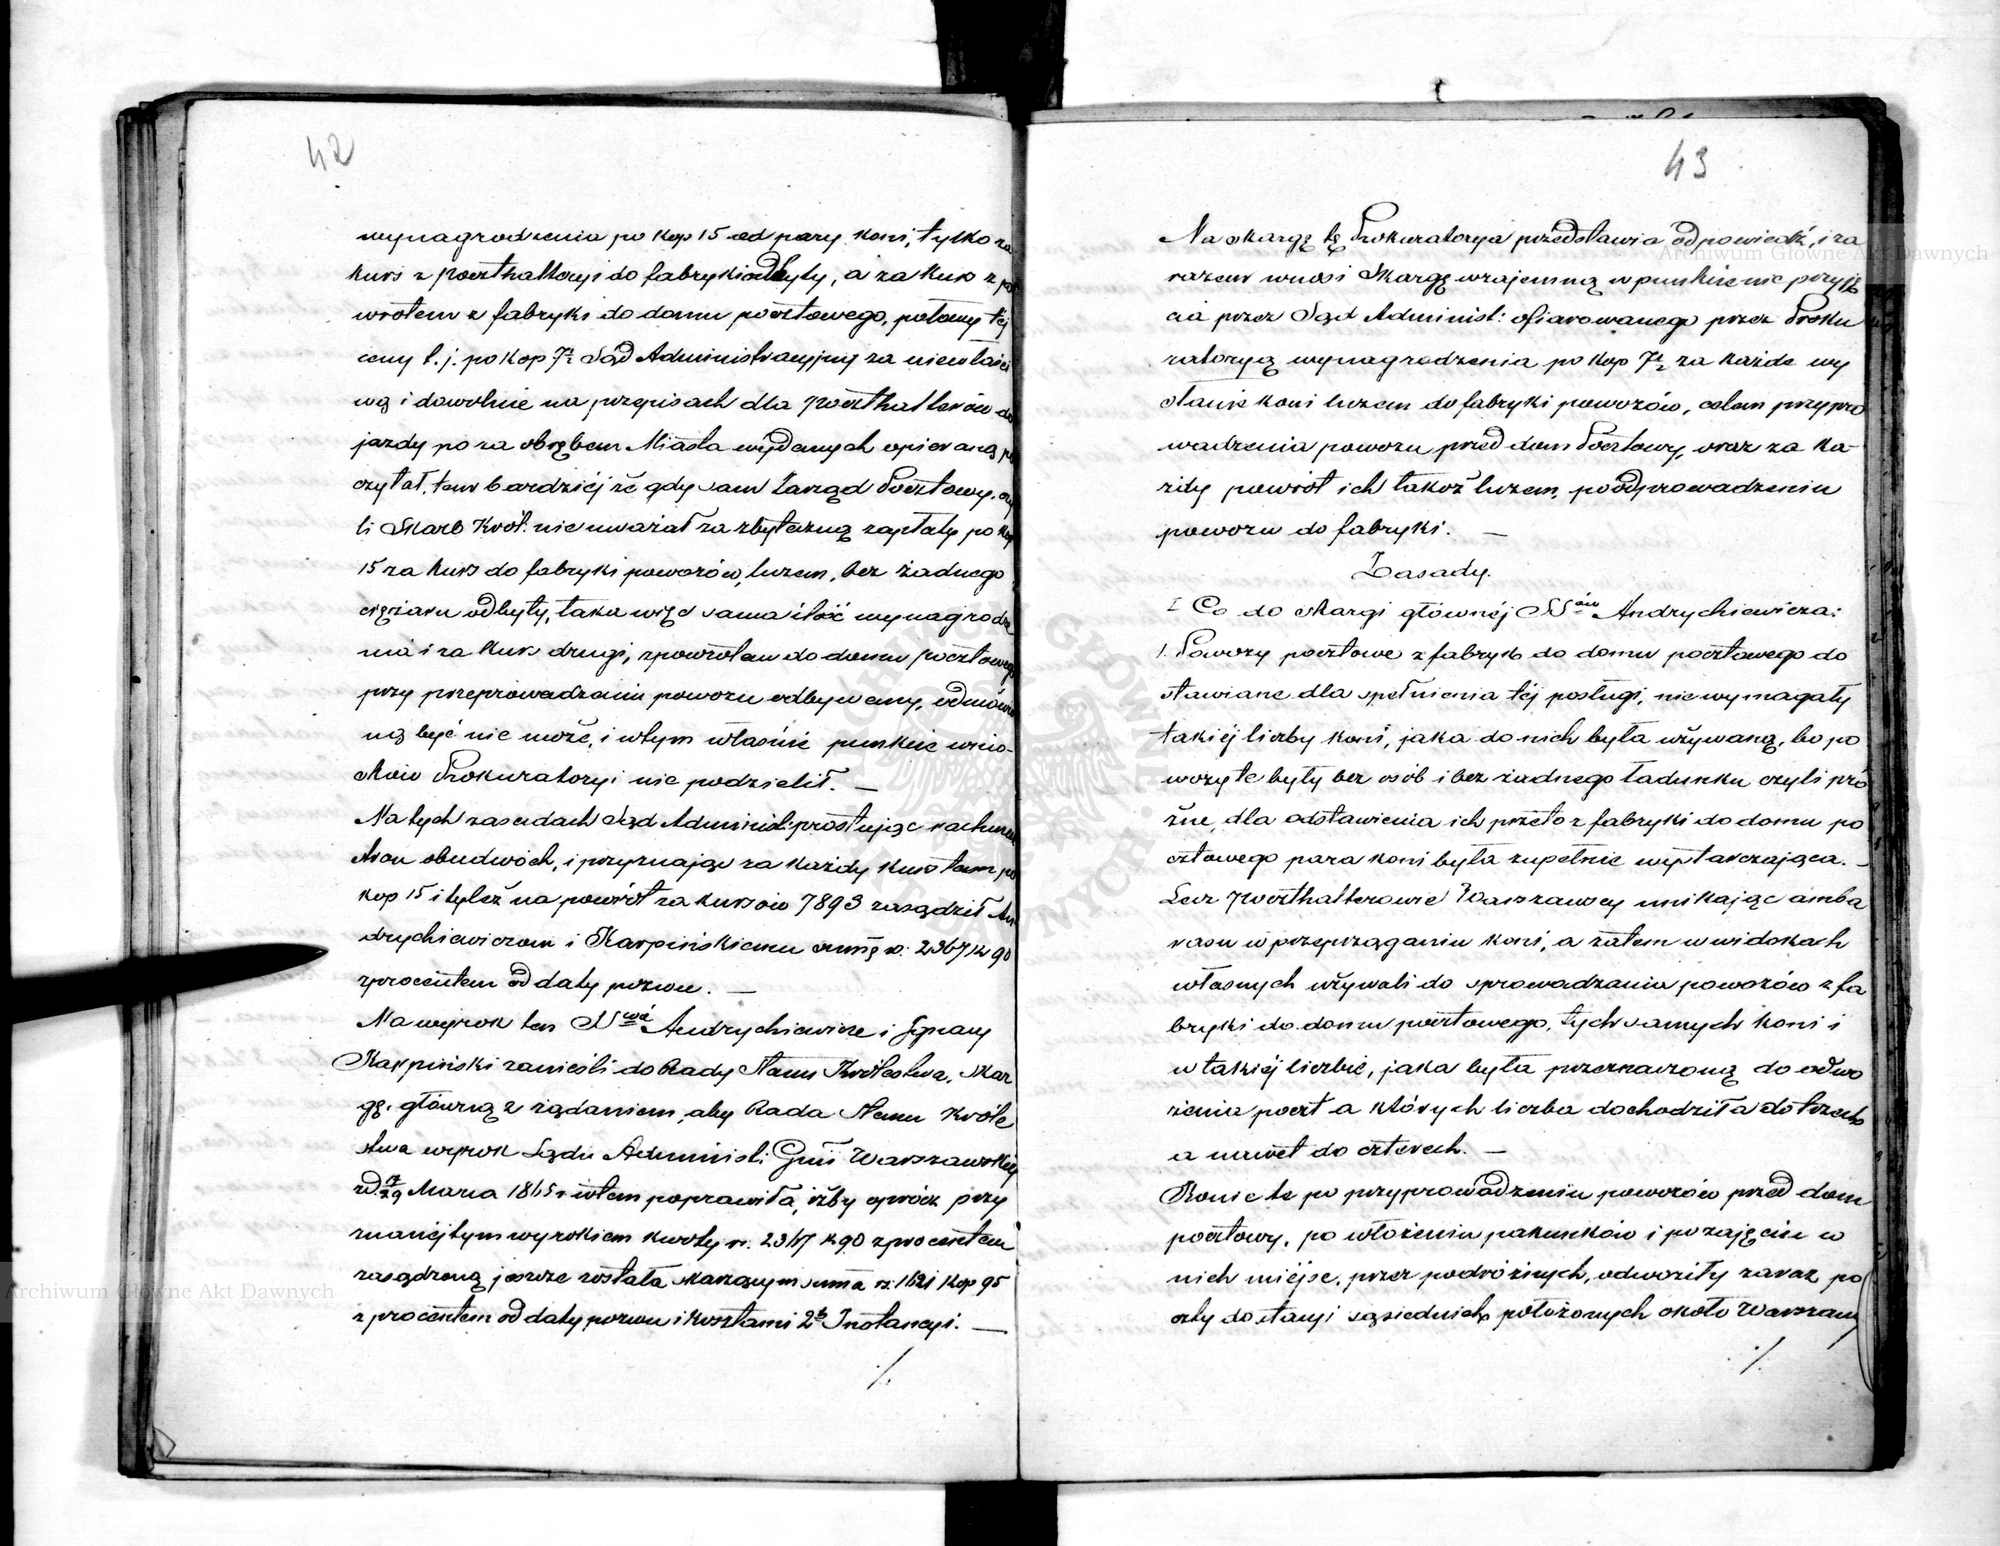 42
wynagrodzenia po kop 15 od pary koni, tylko za
kurs z poczthalteryi do fabryki odbyty, a za kurs z po
wrotem z fabryki do domu pocztowego, połowy tej
ceny t. j. po kop 7½ Sąd Administracyjny za niewłaści
wą i dowolnie na przepisach dla poczthalterów do
jazdy po za obrębem Miasta wydanych opieraną po
czytał, tem bardziej że gdy sam Zarząd Pocztowy, czy
li Skarb Król: nie uważał za zbyteczną zapłatę po kop
15 za kurs do fabryki powozów, luzem, bez żadnego
ciężaru odbyty, taka więc sama ilość wynagrodze
nia i za kurs drugi, z powrotem do domu pocztowego
przy przeprowadzaniu powozu odbywany, odmówio
ną być nie może, i w tym właśnie punkcie wnio-
sków Prokuratoryi nie podzielił. —
Na tych zasadach Sąd Administ: prostując rachunki
stron obudwóch, i przyznając za każdy kurs tam po
kop 15 i tyleż na powrót za kursów 7893 zasądził An
drychiewiczom i Karpińskiemu summę rs: 2367 k 90
z procentem od daty pozwu. —
Na wyrok ten SSwie Andrychiewicz i Ignacy
Karpiński zanieśli do Rady Stanu Królestwa, skar
gę główną z żądaniem, aby Rada Stanu Króle
stwa wyrok Sądu Administ: Gnii Warszawskiej
z d. 17/29 Marca 1865 r w tem poprawiła, iżby oprócz przy
znanej tym wyrokiem kwoty rs. 2367 k 90 z procentem
zasądzoną jeszcze została skarżącym summa rs. 1621 kop 95
z procentem od daty pozwu i kosztami 2ej Instancyi. —
./.
43
Na skargę tę Prokuratorya przedstawia odpowiedź, i za
razem wnosi skargę wzajemną w punkcie nie przyję
cia przez Sąd Administ: ofiarowanego przez Proku
ratoryą wynagrodzenia po kop 7½ za każde wy
słanie koni luzem do fabryki powozów, celem przypro
wadzenia powozu przed dom Pocztowy, oraz za ka-
żdy powrót ich takoż luzem, po odprowadzeniu
powozu do fabryki. —
Zasady.
I Co do skargi głównej SSów Andrychiewicza:
1. Powozy pocztowe z fabryk do domu pocztowego do
stawiane dla spełnienia tej posługi, nie wymagały
takiej liczby koni, jaka do nich była używaną, bo po
wozy te były bez osób i bez żadnego ładunku czyli pró
żne, dla odstawienia ich przeto z fabryki do domu po
cztowego para koni była zupełnie wystarczająca. —
Lecz poczthalterowie Warszawscy unikając amba
rasu w przeprzęganiu koni, a zatem w widokach
własnych używali do sprowadzania powozów z fa
bryki do domu pocztowego, tych samych koni i
w takiej liczbie, jaka była przeznaczoną do odwo
żenia poczt a których liczba dochodziła do trzech
a nawet do czterech. —
Konie te po przyprowadzeniu powozów przed dom
pocztowy, po włożeniu pakunków i po zajęciu w
nich miejsc, przez podróżnych, odwoziły zaraz po
czty do stacyi sąsiednich położonych około Warszawy
./.
Archiwum Główne Akt Dawnych
Archiwum Główne Akt Dawnych